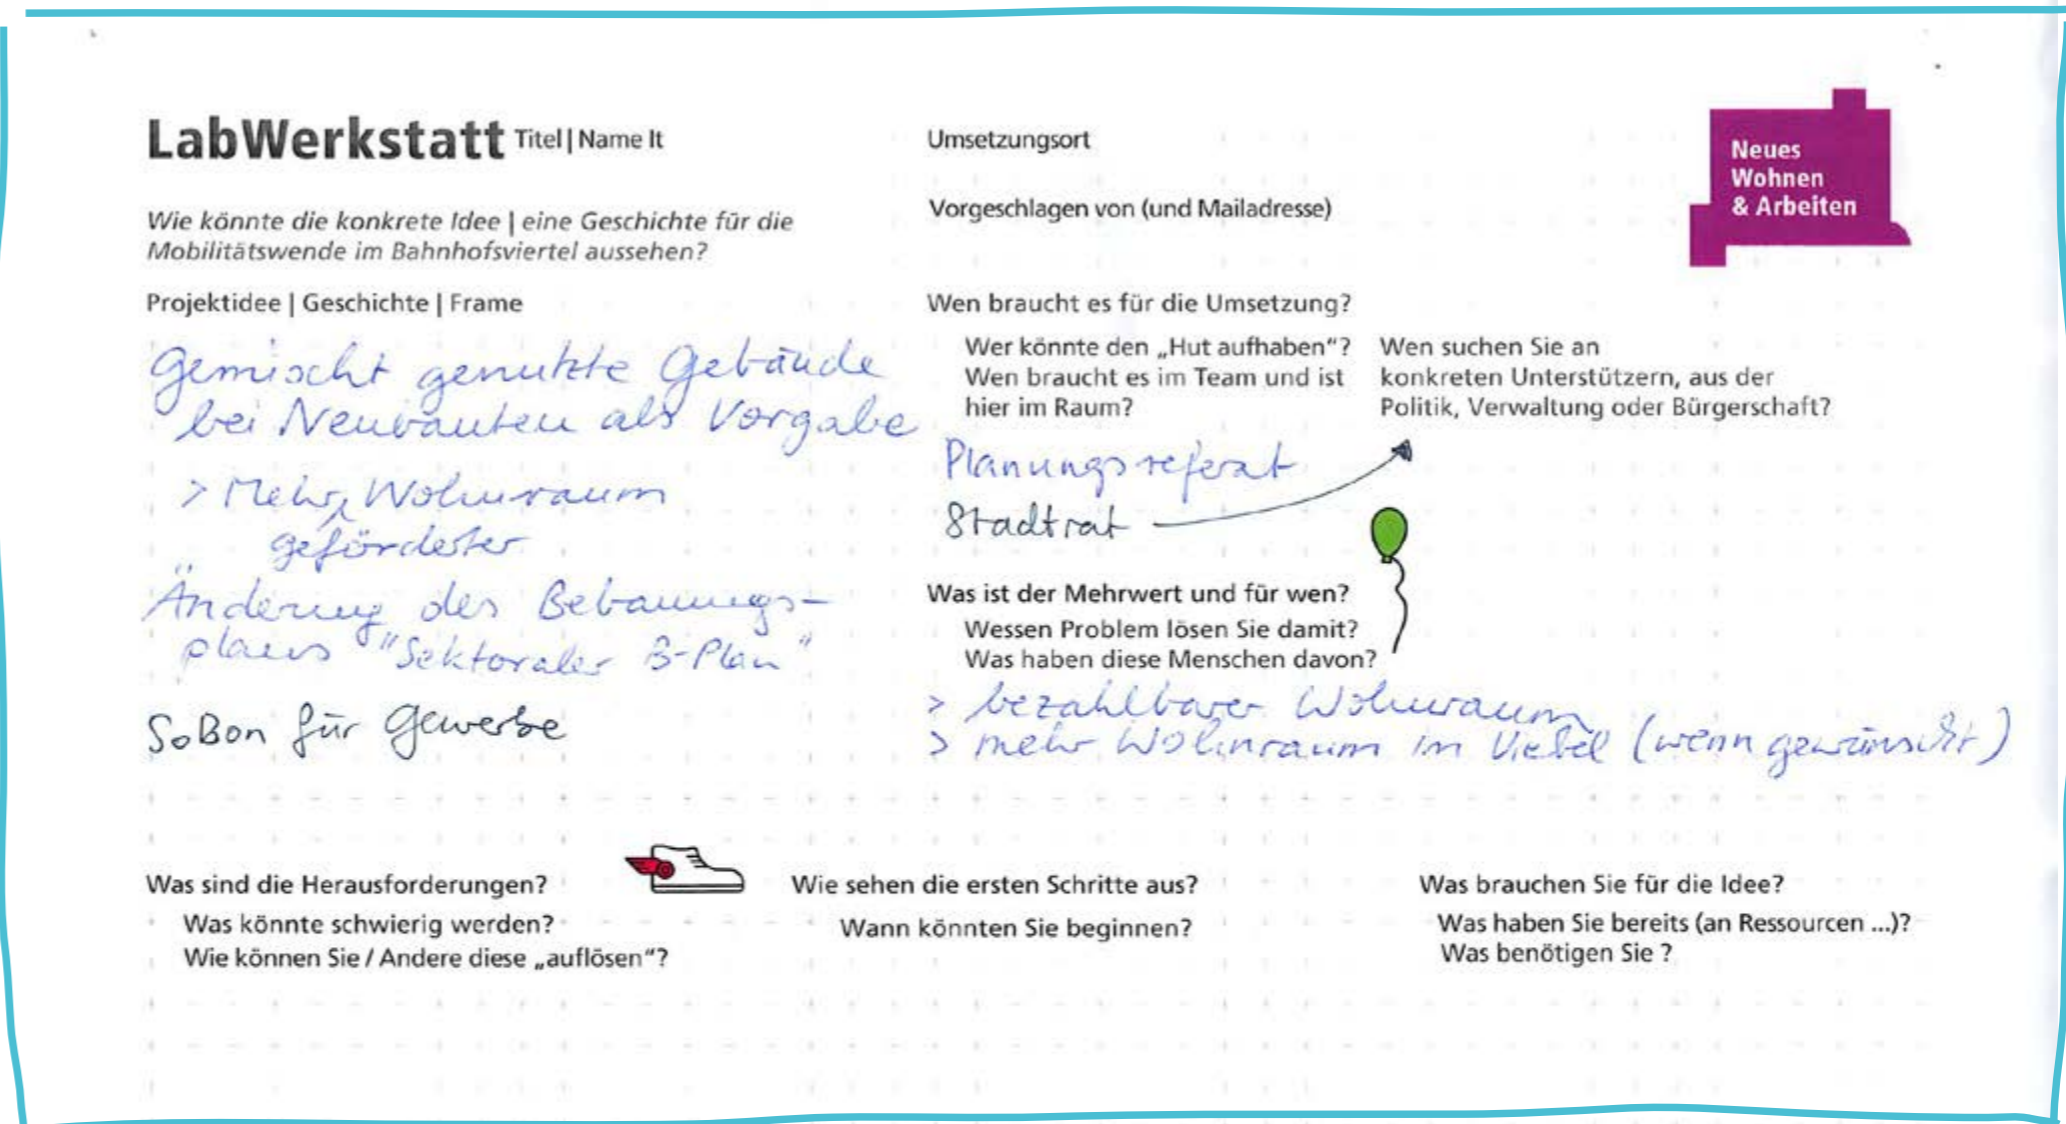 LabWerkstatt Titel | Name It
Wie könnte die konkrete Idee | eine Geschichte für die
Mobilitätswende im Bahnhofsviertel aussehen?
Projektidee | Geschichte | Frame
Gemischt genutzte Gebäude
bei Neubauten als Vorgabe
> Mehr Wohnraum
geförderter
Änderung des Bebauungs-
plans "Sektoraler B-Plan"
SoBon für Gewerbe
Umsetzungsort
Vorgeschlagen von (und Mailadresse)
Neues
Wohnen
& Arbeiten
Wen braucht es für die Umsetzung?
Wer könnte den „Hut aufhaben“?
Wen braucht es im Team und ist
hier im Raum?
Wen suchen Sie an
konkreten Unterstützern, aus der
Politik, Verwaltung oder Bürgerschaft?
Planungsreferat
Stadtrat
Was ist der Mehrwert und für wen?
Wessen Problem lösen Sie damit?
Was haben diese Menschen davon?
> bezahlbarer Wohnraum
> mehr Wohnraum im Viertel (wenn gewünscht)
Was sind die Herausforderungen?
Was könnte schwierig werden?
Wie können Sie / Andere diese „auflösen“?
Wie sehen die ersten Schritte aus?
Wann könnten Sie beginnen?
Was brauchen Sie für die Idee?
Was haben Sie bereits (an Ressourcen ...)?
Was benötigen Sie ?